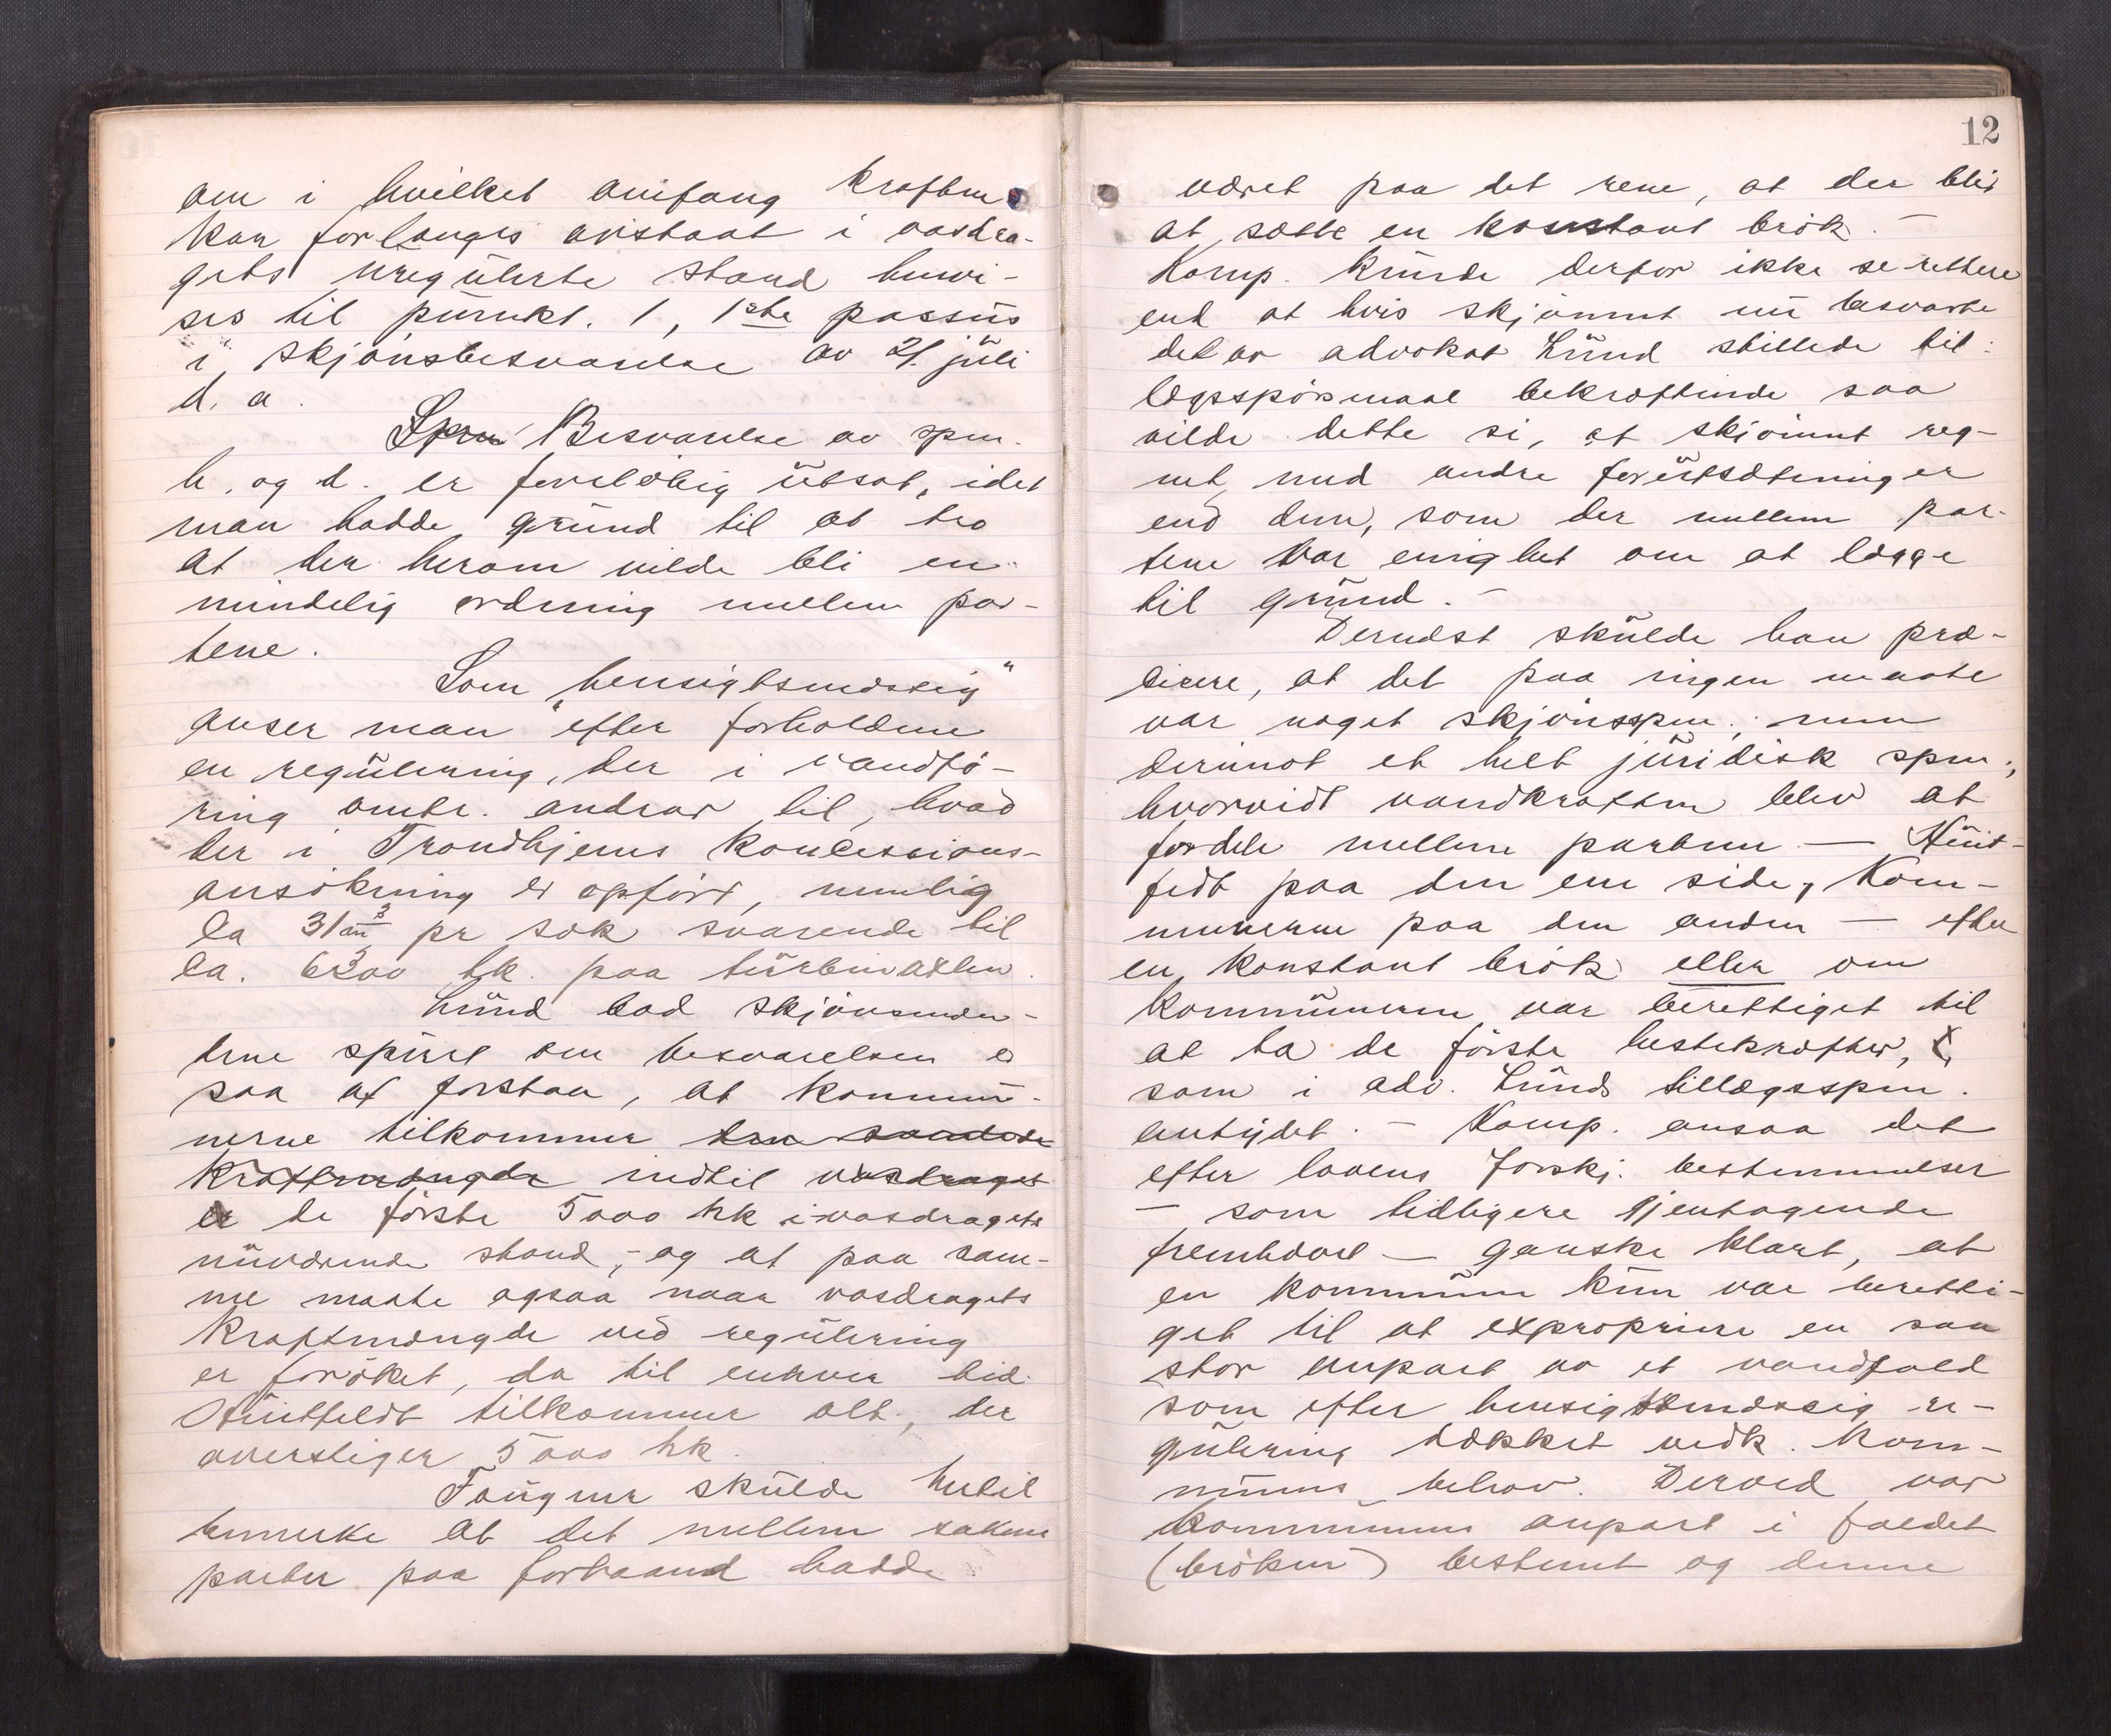 om i hvilket omfang kraften
kan forlanges avstaat i vasdra-
gets uregulerte stand henvi-
ses til punkt. 1, 1ste passus
i skjönsbesvarelse av 21. juli
d. a.
Spm Besvarelse av spm.
b. og d. er forelöbig utsat, idet
man hadde grund til at tro
at der herom vilde bli en
mindelig ordning mellem par-
tene.
Som "hensigtsmæssig"
anser man efter forholdene
en regulering, der i vandfö-
ring omtr. andrar til, hvad
der i Trondhjems koncessions-
ansökning er opfört, nemlig
ca 31 m3 pr sek svarende til
ca. 6300 hk. paa turbinaxlen.
Lund bad skjönsmæn-
dene spurt om besvarelsen er
saa at forstaa, at kommu-
nerne tilkommer den saadede
kraftmængde indtil vasdraget
er de förste 5000 hk i vasdragets
nuværende stand, - og at paa sam-
me maate ogsaa naar vasdragets
kraftmængde ved regulering
er foröket, da til enhver tid
Huitfeldt tilkommer alt, der
overstiger 5000 hk.
Fougner skulde hertil
bemerke at det mellem sakens
parter paa forhaand hadde
12
været paa det rene, at der blir
at sætte en konstant brök. -
Komp. kunde derfor ikke se rettere
end at hvis skjönnet nu besvarte
det av advokat Lund stillede til-
lægsspörsmaal bekræftende saa
vilde dette si, at skjönnet reg-
net med andre forutsætninger
end dem, som der mellem par-
tene var enighet om at lægge
til grund. -
Dernæst skulde han præ-
cicere, at det paa ingen maate
var noget skjönsspm.; men
derimot et helt juridisk spm.,
hvorvidt vandkraften blev at
fordele mellem parterne - Huit-
feldt paa den ene side, Kom-
munerne paa den anden - efter
en konstant brök eller om
kommunerne var berettiget til
at ta de förste hestekræfter,
som i adv. Lunds tillægsspm.
antydet. - Komp. ansaa det
efter lovens forskj. bestemmelser
- som tidligere gjentagende
fremhævet - ganske klart, at
en kommune kun var beretti-
get til at expropriere en saa
stor anpart av et vandfald
som efter hensigtsmæssig re-
gulering dækket vedk. kom-
munes behov. Derved var
kommunens anpart i faldet
(bröken) bestemt og denne